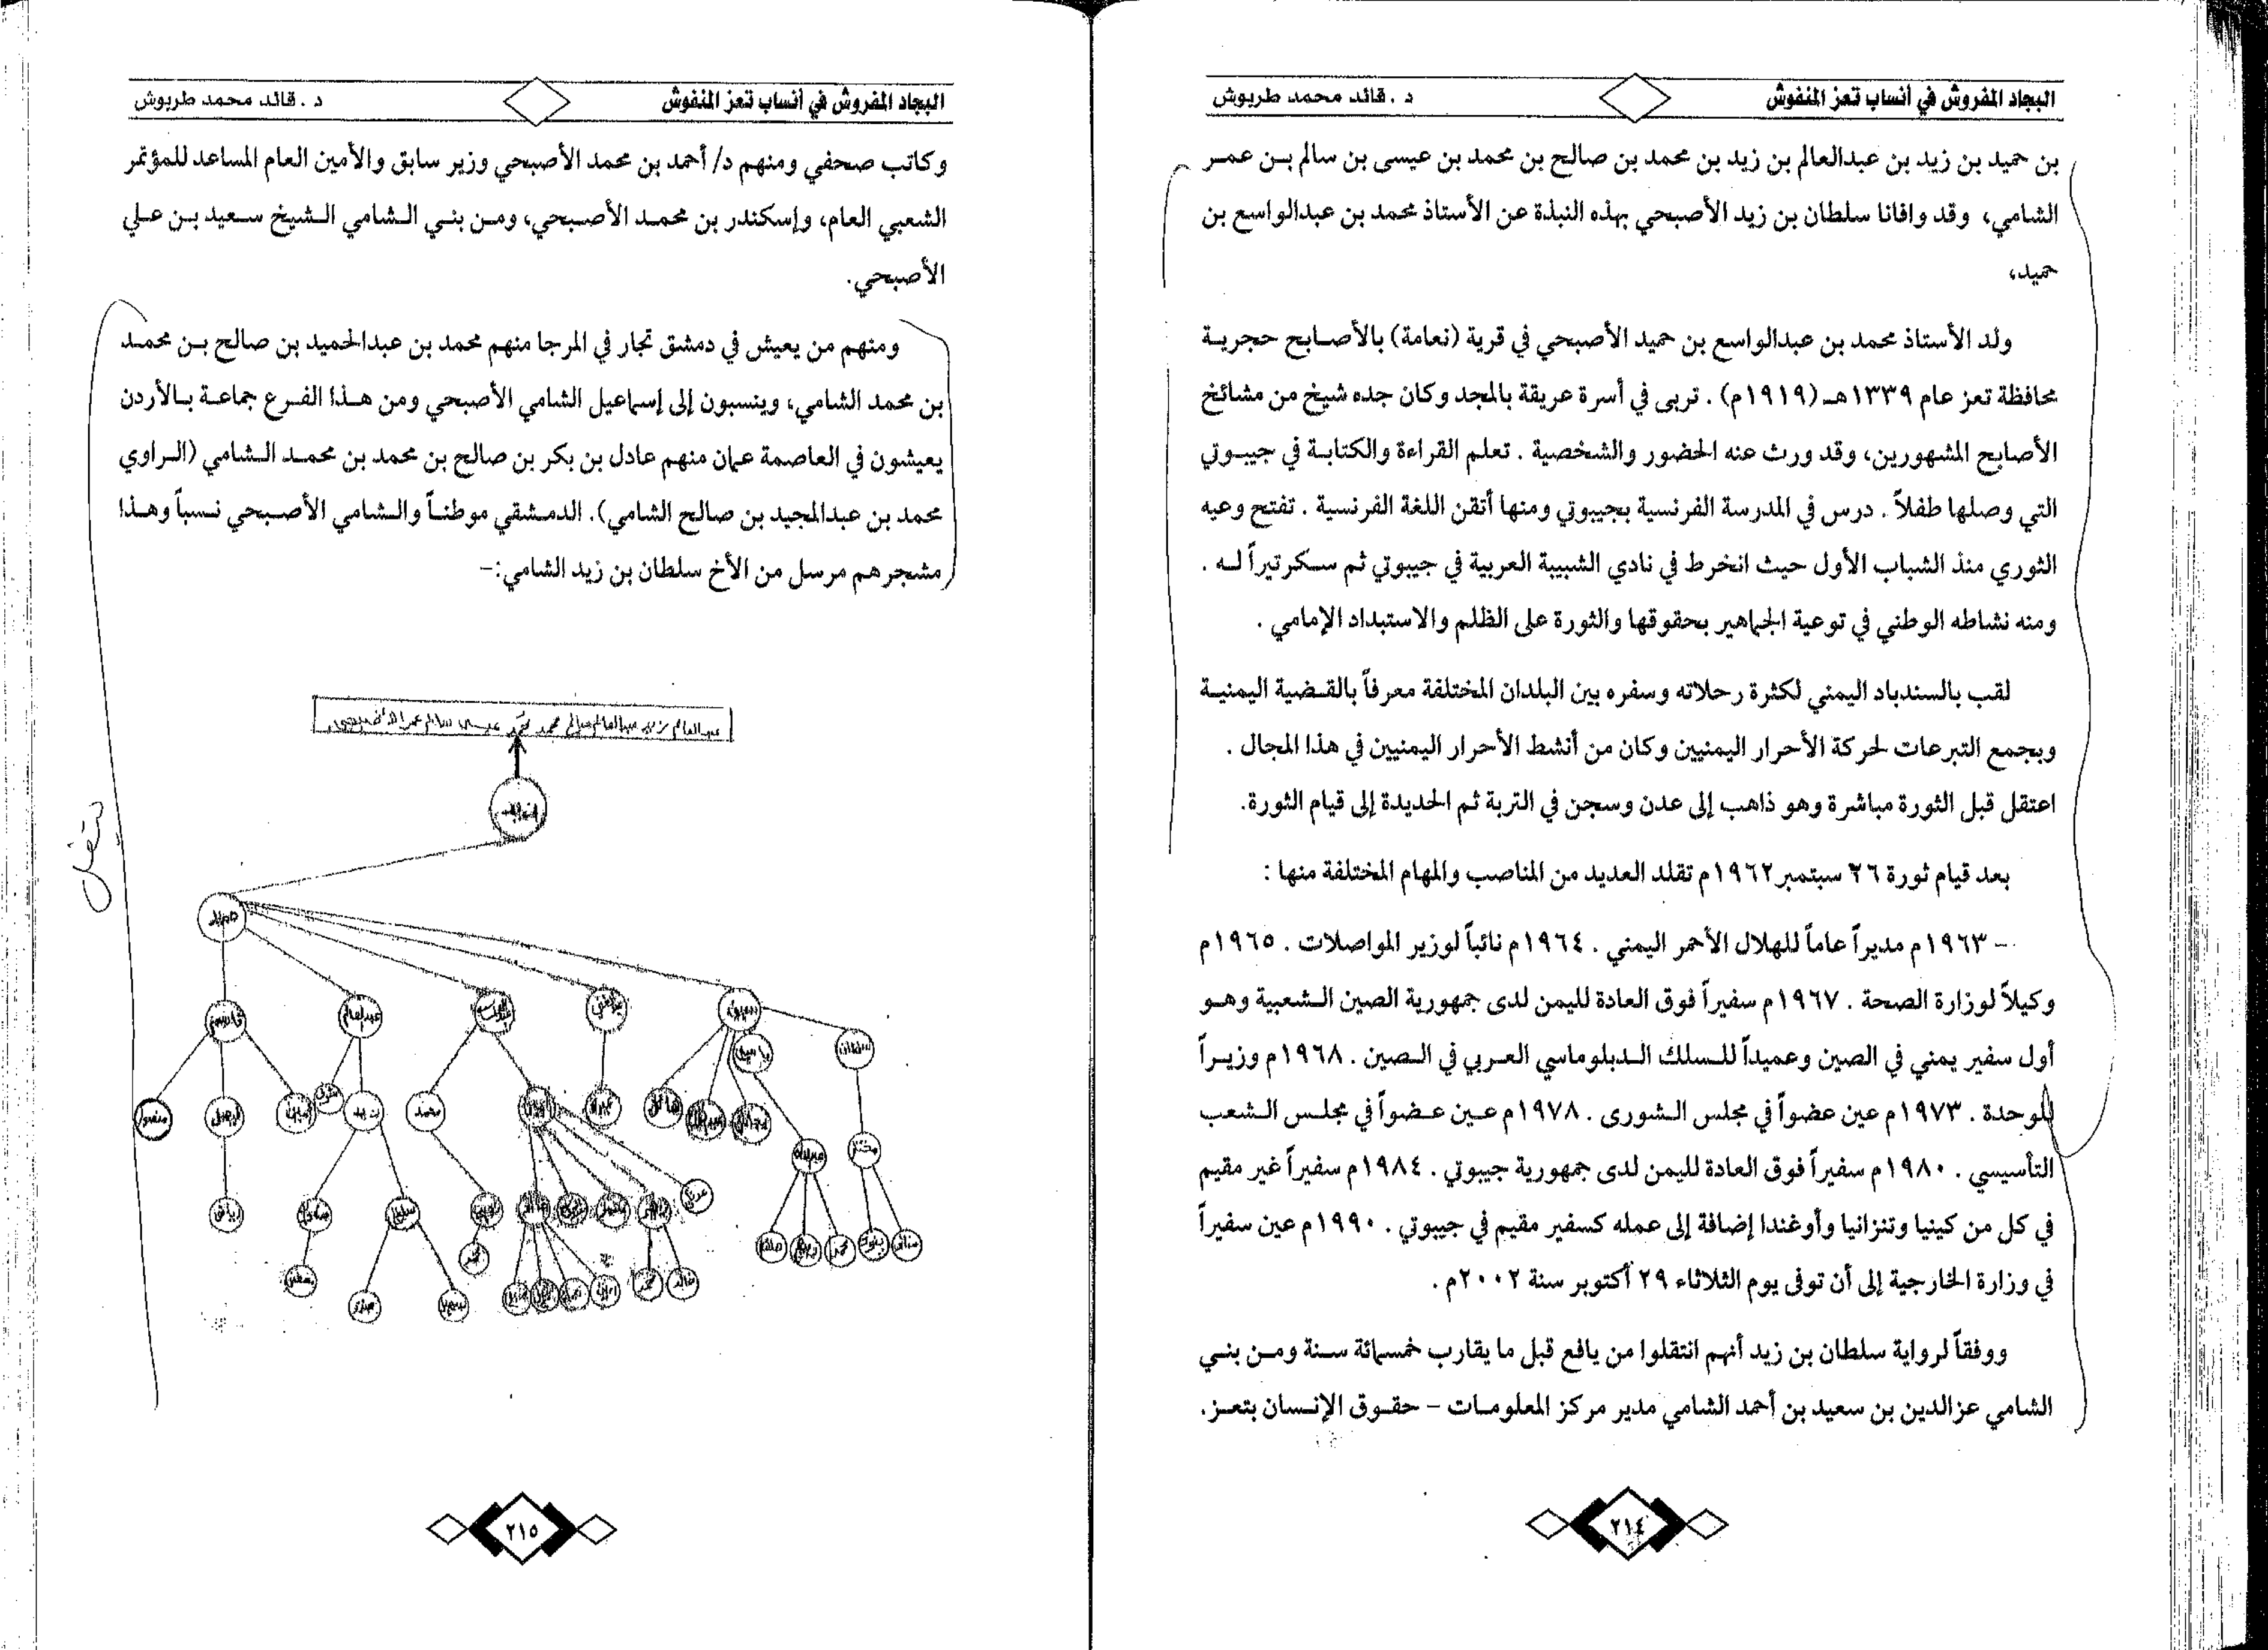 البجاد المفروش في أنساب تعز المنفوش
د. قائد محمد طربوش
بن حميد بن زيد بن عبدالعالم بن زيد بن محمد بن صالح بن محمد بن عيسى بن سالم بن عمر
الشامي، وقد وافانا سلطان بن زيد الأصبحي بهذه النبذة عن الأستاذ محمد بن عبدالواسع بن
حميد،
ولد الأستاذ محمد بن عبدالواسع بن حميد الأصبحي في قرية (نعامة) بالأصابح حجرية
محافظة تعز عام ١٣٣٩هـ (١٩١٩م). تربى في أسرة عريقة بالمجد وكان جده شيخ من مشائخ
الأصابح المشهورين، وقد ورث عنه الحضور والشخصية. تعلم القراءة والكتابة في جيبوتي
التي وصلها طفلاً. درس في المدرسة الفرنسية بجيبوتي ومنها أتقن اللغة الفرنسية. تفتح وعيه
الثوري منذ الشباب الأول حيث انخرط في نادي الشبيبة العربية في جيبوتي ثم سكرتيراً له.
ومنه نشاطه الوطني في توعية الجماهير بحقوقها والثورة على الظلم والاستبداد الإمامي.
لقب بالسندباد اليمني لكثرة رحلاته وسفره بين البلدان المختلفة معرفاً بالقضية اليمنية
وبجمع التبرعات لحركة الأحرار اليمنيين وكان من أنشط الأحرار اليمنيين في هذا المجال.
اعتقل قبل الثورة مباشرة وهو ذاهب إلى عدن وسجن في التربة ثم الحديدة إلى قيام الثورة.
بعد قيام ثورة ٢٦ سبتمبر١٩٦٢م تقلد العديد من المناصب والمهام المختلفة منها:
- ١٩٦٣م مديراً عاماً للهلال الأحمر اليمني. ١٩٦٤م نائباً لوزير المواصلات. ١٩٦٥م
وكيلاً لوزارة الصحة. ١٩٦٧م سفيراً فوق العادة لليمن لدى جمهورية الصين الشعبية وهو
أول سفير يمني في الصين وعميداً للسلك الدبلوماسي العربي في الصين. ١٩٦٨م وزيراً
للوحدة. ١٩٧٣م عين عضواً في مجلس الشورى. ١٩٧٨م عين عضواً في مجلس الشعب
التأسيسي. ١٩٨٠م سفيراً فوق العادة لليمن لدى جمهورية جيبوتي. ١٩٨٤م سفيراً غير مقيم
في كل من كينيا وتنزانيا وأوغندا إضافة إلى عمله كسفير مقيم في جيبوتي. ١٩٩٠م عين سفيراً
في وزارة الخارجية إلى أن توفى يوم الثلاثاء ٢٩ أكتوبر سنة ٢٠٠٢م.
ووفقاً لرواية سلطان بن زيد أنهم انتقلوا من يافع قبل ما يقارب خمسمائة سنة ومن بني
الشامي عزالدين بن سعيد بن أحمد الشامي مدير مركز المعلومات - حقوق الإنسان بتعز.
٢١٤
البجاد المفروش في أنساب تعز المنفوش
د. قائد محمد طربوش
وكاتب صحفي ومنهم د/ أحمد بن محمد الأصبحي وزير سابق والأمين العام المساعد للمؤتمر
الشعبي العام، وإسكندر بن محمد الأصبحي، ومن بني الشامي الشيخ سعيد بن علي
الأصبحي.
ومنهم من يعيش في دمشق تجار في المرجا منهم محمد بن عبدالحميد بن صالح بن محمد
بن محمد الشامي، وينسبون إلى إسماعيل الشامي الأصبحي ومن هذا الفرع جماعة بالأردن
يعيشون في العاصمة عمان منهم عادل بن بكر بن صالح بن محمد بن محمد الشامي (الراوي
محمد بن عبدالمجيد بن صالح الشامي). الدمشقي موطناً والشامي الأصبحي نسباً وهذا
مشجرهم مرسل من الأخ سلطان بن زيد الشامي:-
عبدالعالم زيد عبدالعالم صالح محمد محمد عيسى سالم عمر الأصبحي
حميد
قاسم
عبدالعالم
سلطان
منصور
زيد
محمد
رياض
سلطان
محمد
خالد
٢١٥